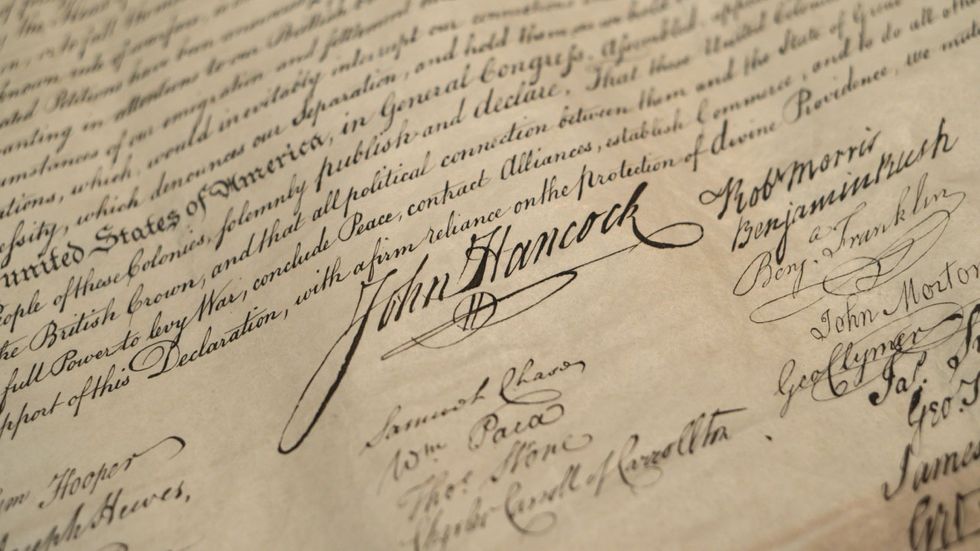 known rule of warfare,
ated Petitions have been answered
anting in attentions to our British
umstances of our emigration and settlement
ations, which, would inevitably interrupt our connections
essity, which denounces our Separation, and hold them as we hold
united States of America, in General Congress, Assembled,
eople of these Colonies, solemnly publish and declare, That these United Colonies
he British Crown, and that all political connection between them and the State of Great
full Power to levy War, conclude Peace, contract Alliances, establish Commerce, and to do all othe
pport of this Declaration, with a firm reliance on the protection of divine Providence, we mutu
John Hancock
Robt Morris
Benjamin Rush
Benj. Franklin
John Morton
Geo Clymer
Jas.
Geo.
James
Geo
Samuel Chase
Wm Paca
Thos. Stone
Charles Carroll of Carrollton
Hooper
oseph Hewes,